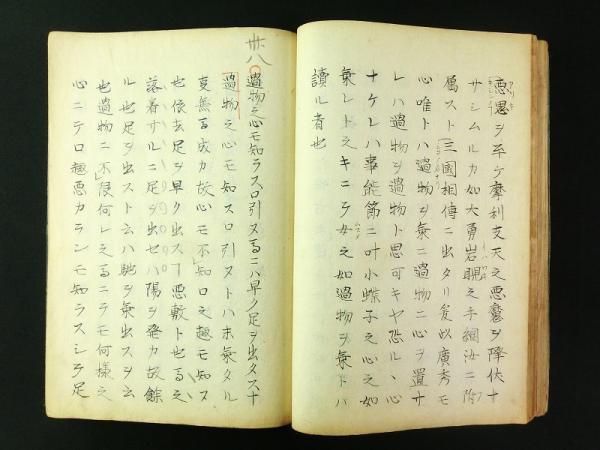 悪思ヲ平ケ摩利支天之悪魔ヲ降伏ナ
サシムルカ如大勇岩覩之手綱汝ニ附
属スト三國相傳ニ出タリ爰以廣秀モ
心唯トハ過物ヲ乗ニ過物ニ心ヲ置サ
レハ過物ヲ過物ト思可キヤ恐ル丶心
ナケレハ事能節ニ叶小蝶子之心之如
乗レト之キニテ女之如過物ヲ乗トハ
讀ル者也
卅八
過物之心モ知ラスロ引ヌ馬ニハ早ク足ヲ出タスナ
過物之心モ知スロ引ヌトハ未乗タル
変無馬成カ故心モ不知口之趣モ知ヌ
也依去足ヲ早ク出スヿ悪敷ト也馬之
落着サルニ足ヲ出セハ陽ヲ発カ故餘
ル也足ヲ出ストハ馳ヲ乗出スヲ云
也過物ニ不限何レ之馬ニテモ何様之
心ニテ口趣悪カランモ知ラスシテ足